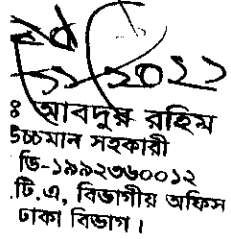 ২০২১
ঃ আবদুর রহিম
উচ্চমান সহকারী
ডি-১৯৯২৩৬০০১২
.টি.এ, বিভাগীয় অফিস
ঢাকা বিভাগ।